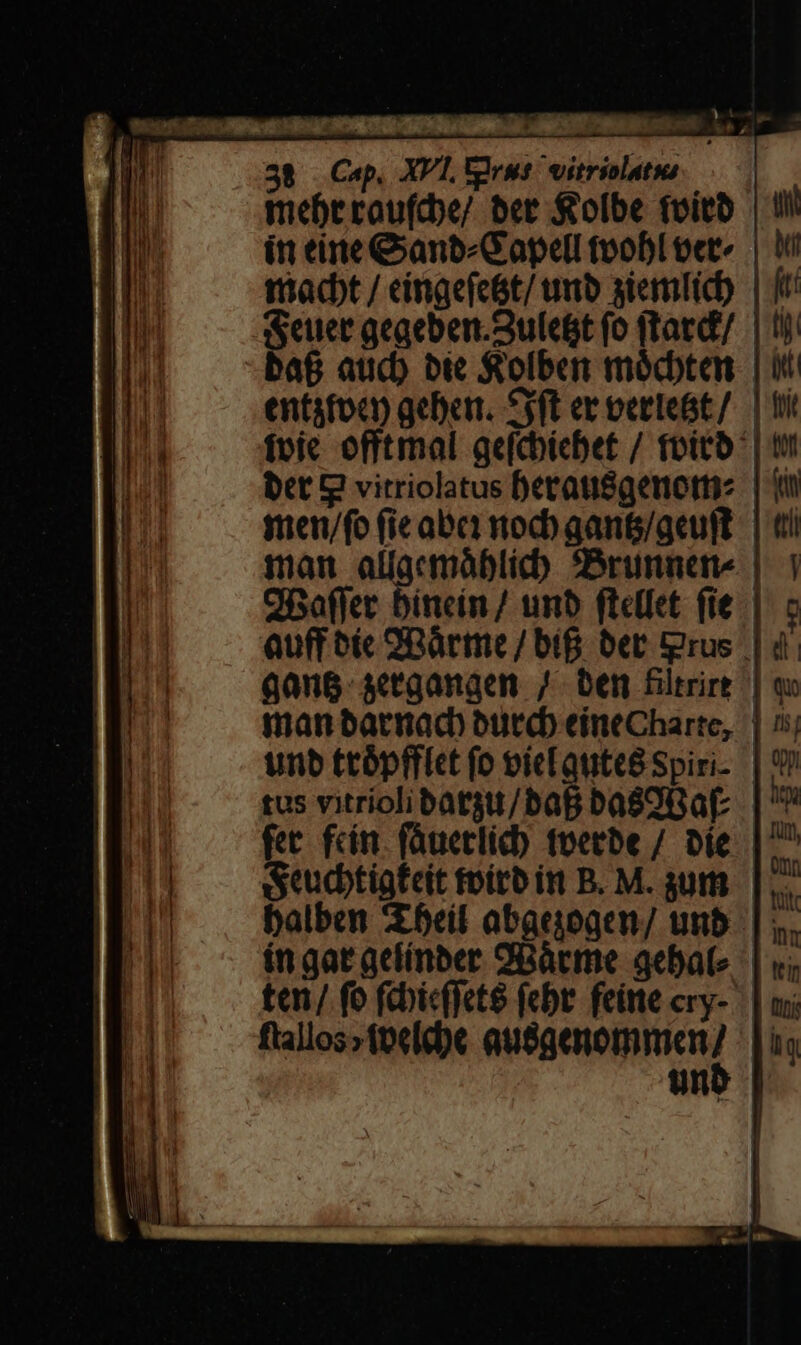 38 Cap. XVI. 🜿rus vitriolatus
mehr rauſche/ der Kolbe wird
in eine Sand-Capell wohl ver-
macht / eingeſetzt/ und ziemlich
Feuer gegeben. Zuletzt ſo ſtarck/
daß auch die Kolben moͤchten
entzwey gehen. Iſt er verletzt /
wie offtmal geſchiehet / wird
der 🜿 vitriolatus herausgenom-
men/ ſo ſie aber noch gantz/ geuſt
man allgemaͤhlich Brunnen-
Waſſer hinein / und ſtellet ſie
auff die Waͤrme / biß der 🜿rus
gantz zergangen / den filtrirt
man darnach durch eine Charte,
und troͤpfflet ſo viel gutes Spiri-
tus vitrioli darzu / daß das Waſ-
ſer fein ſaͤuerlich werde / die
Feuchtigkeit wird in B. M. zum
halben Theil abgezogen / und
in gar gelinder Waͤrme gehal-
ten / ſo ſchieſſets ſehr feine cry-
ſtallos, welche ausgenommen /
und